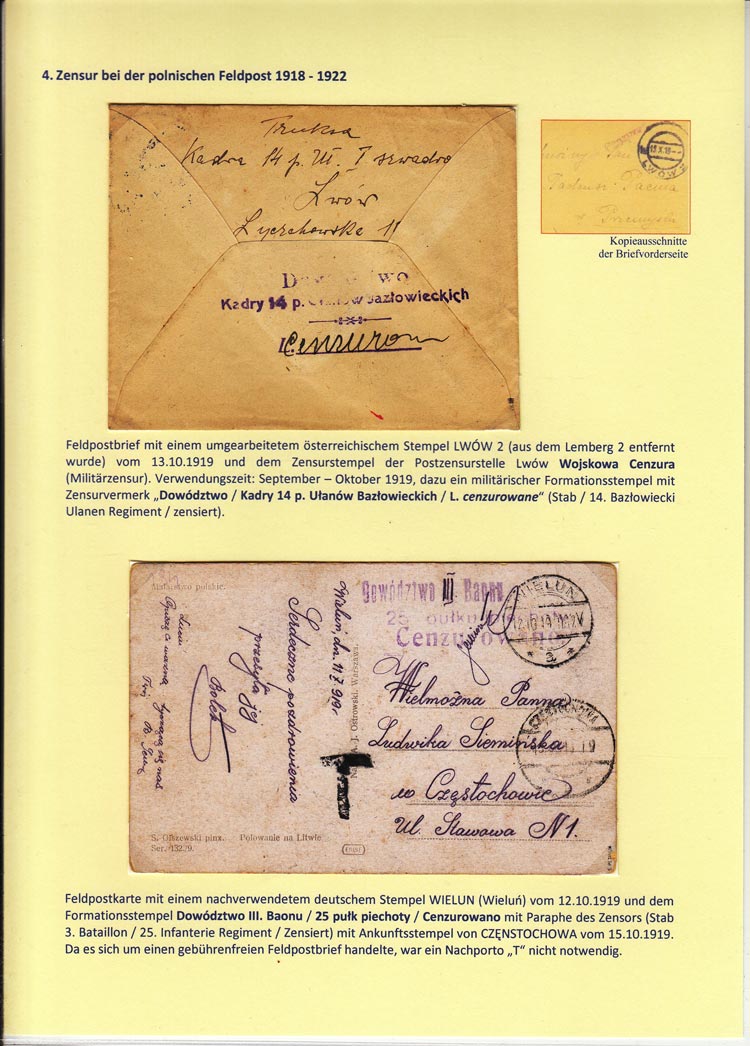 4. Zensur bei der polnischen Feldpost 1918 - 1922
Truksa
Kadra 14 p. Uł. I szwadro
Lwów
Łyczakowska 11
Kadry 14 p. Ułanów Bazłowieckich
L. Cenzurow
13.X.19
LWÓW 2
Tadeusz
Przemyśl
Kopieausschnitte
der Briefvorderseite
Feldpostbrief mit einem umgearbeitetem österreichischem Stempel LWÓW 2 (aus dem Lemberg 2 entfernt
wurde) vom 13.10.1919 und dem Zensurstempel der Postzensurstelle Lwów Wojskowa Cenzura
(Militärzensur). Verwendungszeit: September – Oktober 1919, dazu ein militärischer Formationsstempel mit
Zensurvermerk „Dowództwo / Kadry 14 p. Ułanów Bazłowieckich / L. cenzurowane“ (Stab / 14. Bazłowiecki
Ulanen Regiment / zensiert).
Malarstwo polskie.
Dowództwo III Baonu
25 pułku
Cenzurowano
WIELUN
Wieluń, dn. 11/X 919r.
Serdeczne pozdrowienia
przesyła Jej
Bolek
J. Ostrowski. Warszawa.
T
Wielmożna Panna
Ludwika Siemińska
w Częstochowie
Ul. Stawowa N1.
S. Olszewski pinx. Polowanie na Litwie
Ser. 132.
Feldpostkarte mit einem nachverwendetem deutschem Stempel WIELUN (Wieluń) vom 12.10.1919 und dem
Formationsstempel Dowództwo III. Baonu / 25 pułk piechoty / Cenzurowano mit Paraphe des Zensors (Stab
3. Bataillon / 25. Infanterie Regiment / Zensiert) mit Ankunftsstempel von CZĘNSTOCHOWA vom 15.10.1919.
Da es sich um einen gebührenfreien Feldpostbrief handelte, war ein Nachporto „T“ nicht notwendig.